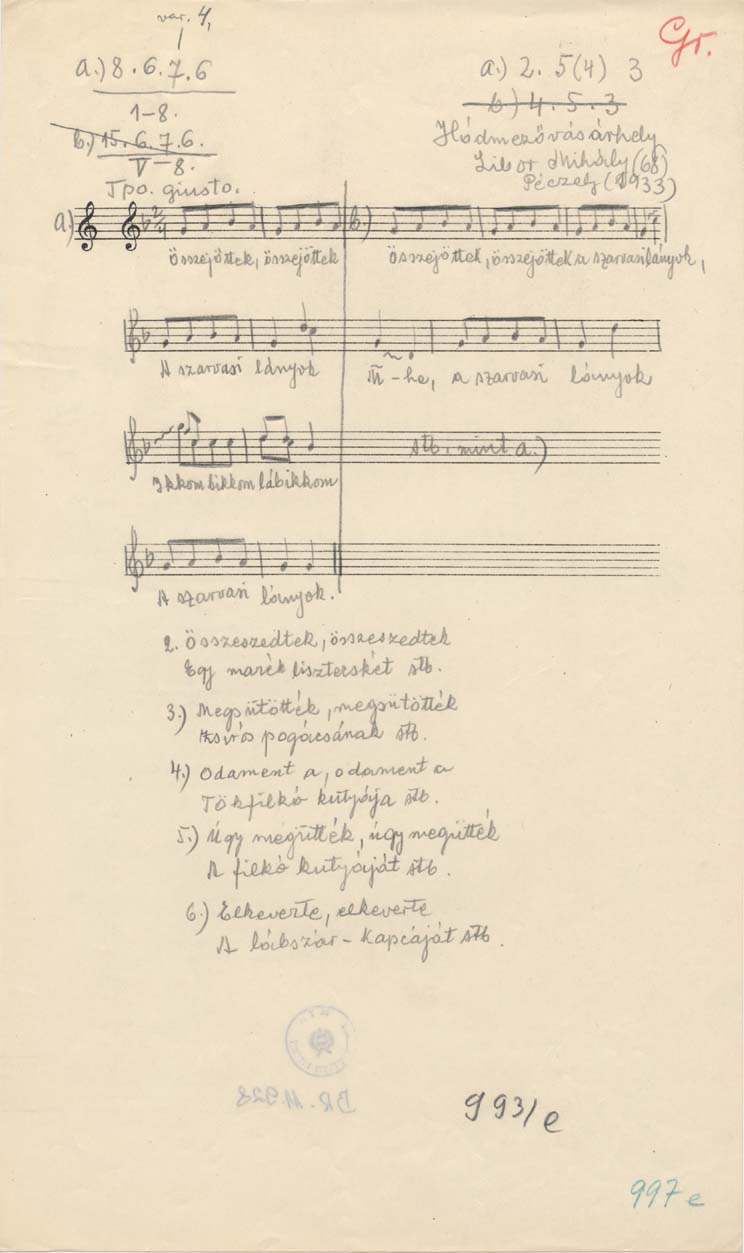 var. 4,
Gr.
a.) 8.6.7.6
a.) 2. 5(4) 3
1-8.
b.) 4.5.3
b.) 15.6.7.6.
Hódmezővásárhely
V-8.
Libor Mihály (68)
Péczely (1933)
Tpo. giusto.
a.) 2/4 b.)
összejöttek, összejöttek
összejöttek, összejöttek a szarvasi lányok,
A szarvasi lányok
-he, a szarvasi lányok
stb. mint a.)
Ikkom bikkom lábikkom
A szarvasi lányok.
2. Összeszedtek, összeszedtek
Egy marék lisztecskét stb.
3.) Megsütötték, megsütötték
pogácsának stb.
4.) Odament a, odament a
Tökfilkó kutyája stb.
5.) Úgy megütték, úgy megütték
A filkó kutyáját stb.
6.) Elkeverte, elkeverte
A lábszár-kapcáját stb.
BR. 11.928
993/e
997 e